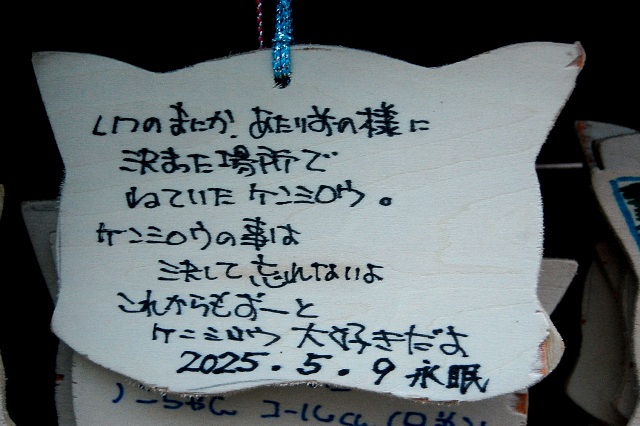 いつのまにか、あたりまの様に
決まった場所で
ねていた ケンミロウ。
ケンミロウの事は
決して忘れないよ
これからもずーと
ケンミロウ 大好きだよ
2025.5.9 永眠